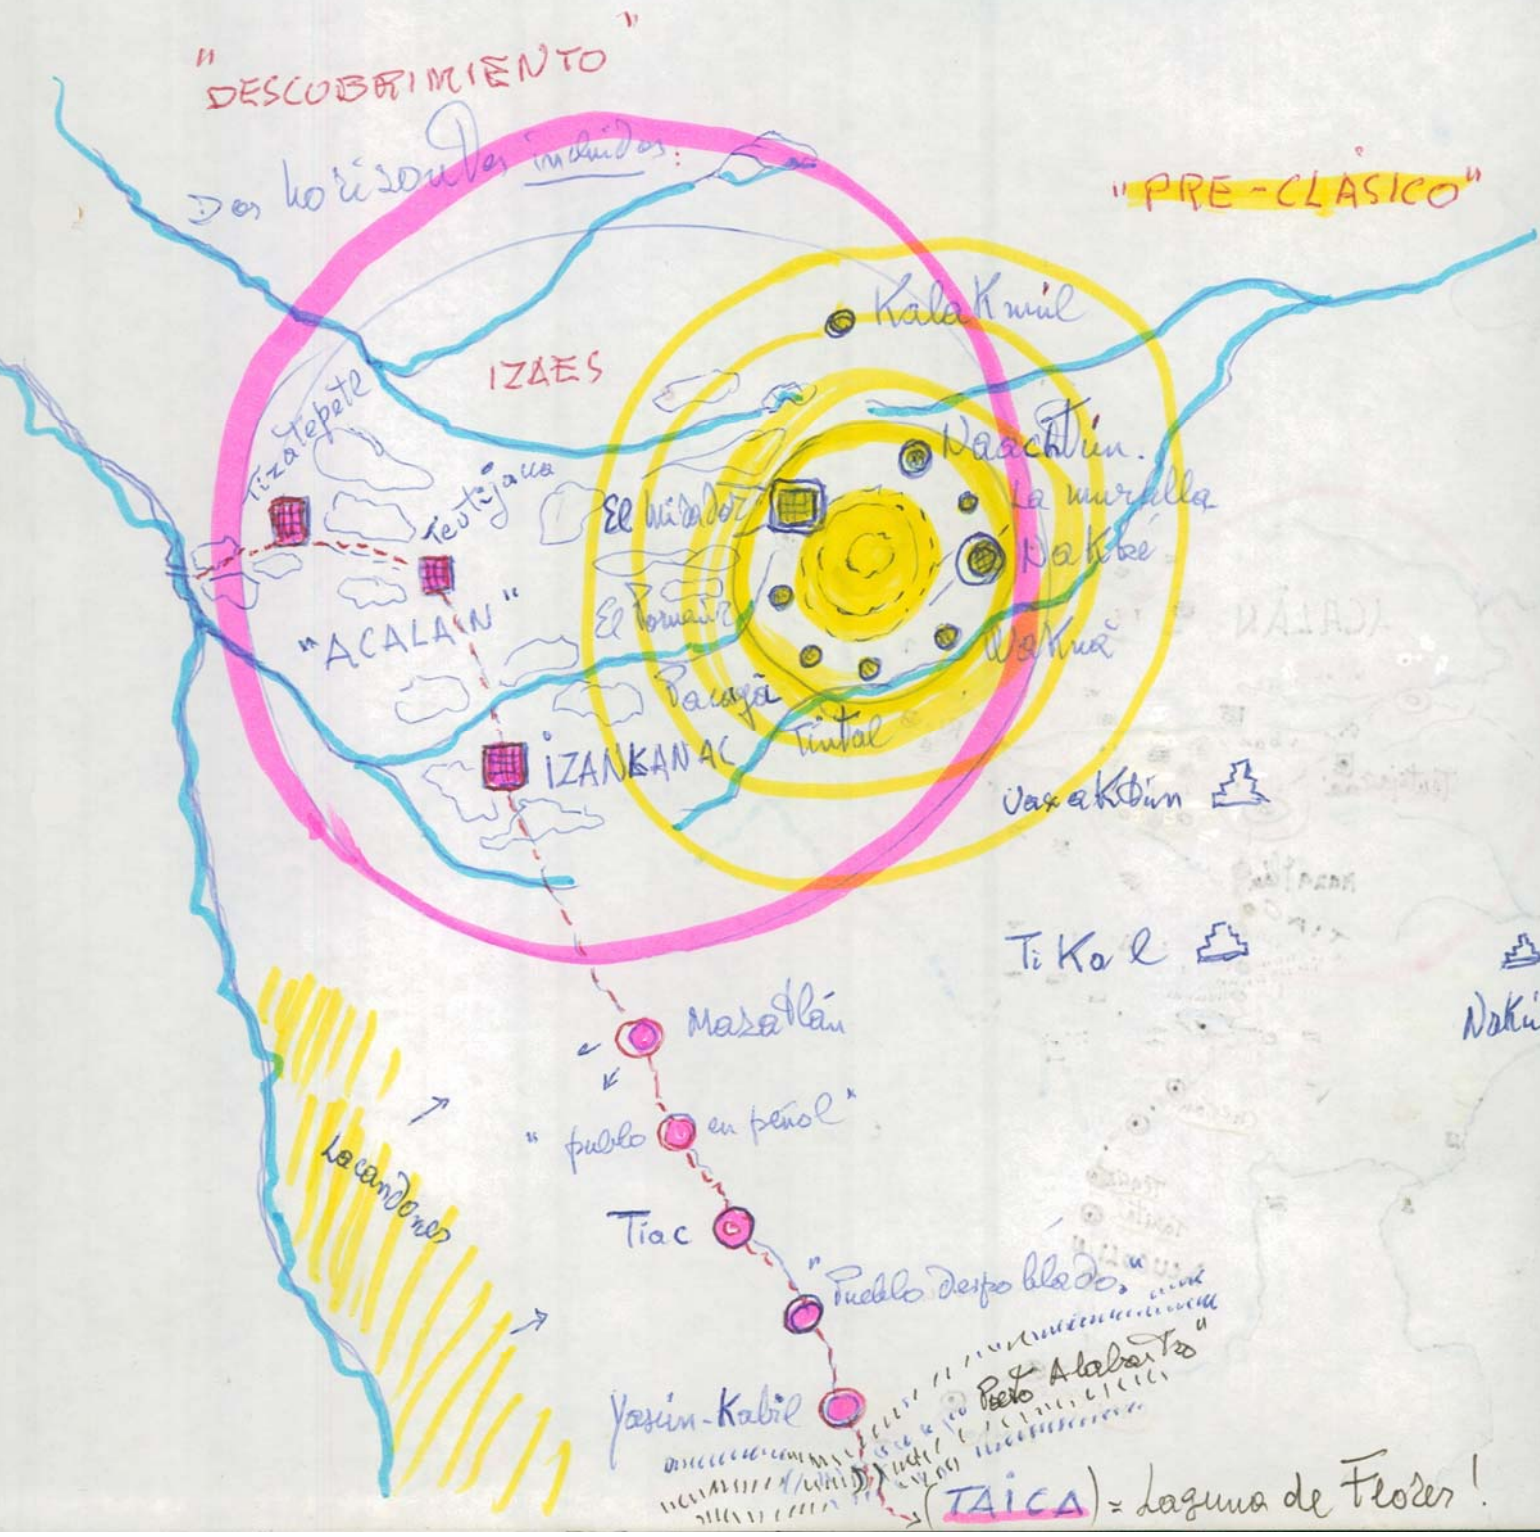 "DESCOBRIMIENTO"
Dos horizontes incluidos:
"PRE-CLÁSICO"
KalaKmul
IZAES
Tizatepetl
Teutijacca
NaachTún.
La muralla
El Mirador
NaKbé
"ACALAN"
WaKná
Pacayá
Tintal
IZANKANAC
UaxaKtún
TiKal
NaKú
Mazatlán
"pueblo en peñol"
Lacandones
Tiac
"Pueblo Despoblado."
Yasún-Kabil
Alabastro"
(TAICA) = Laguna de Flores!